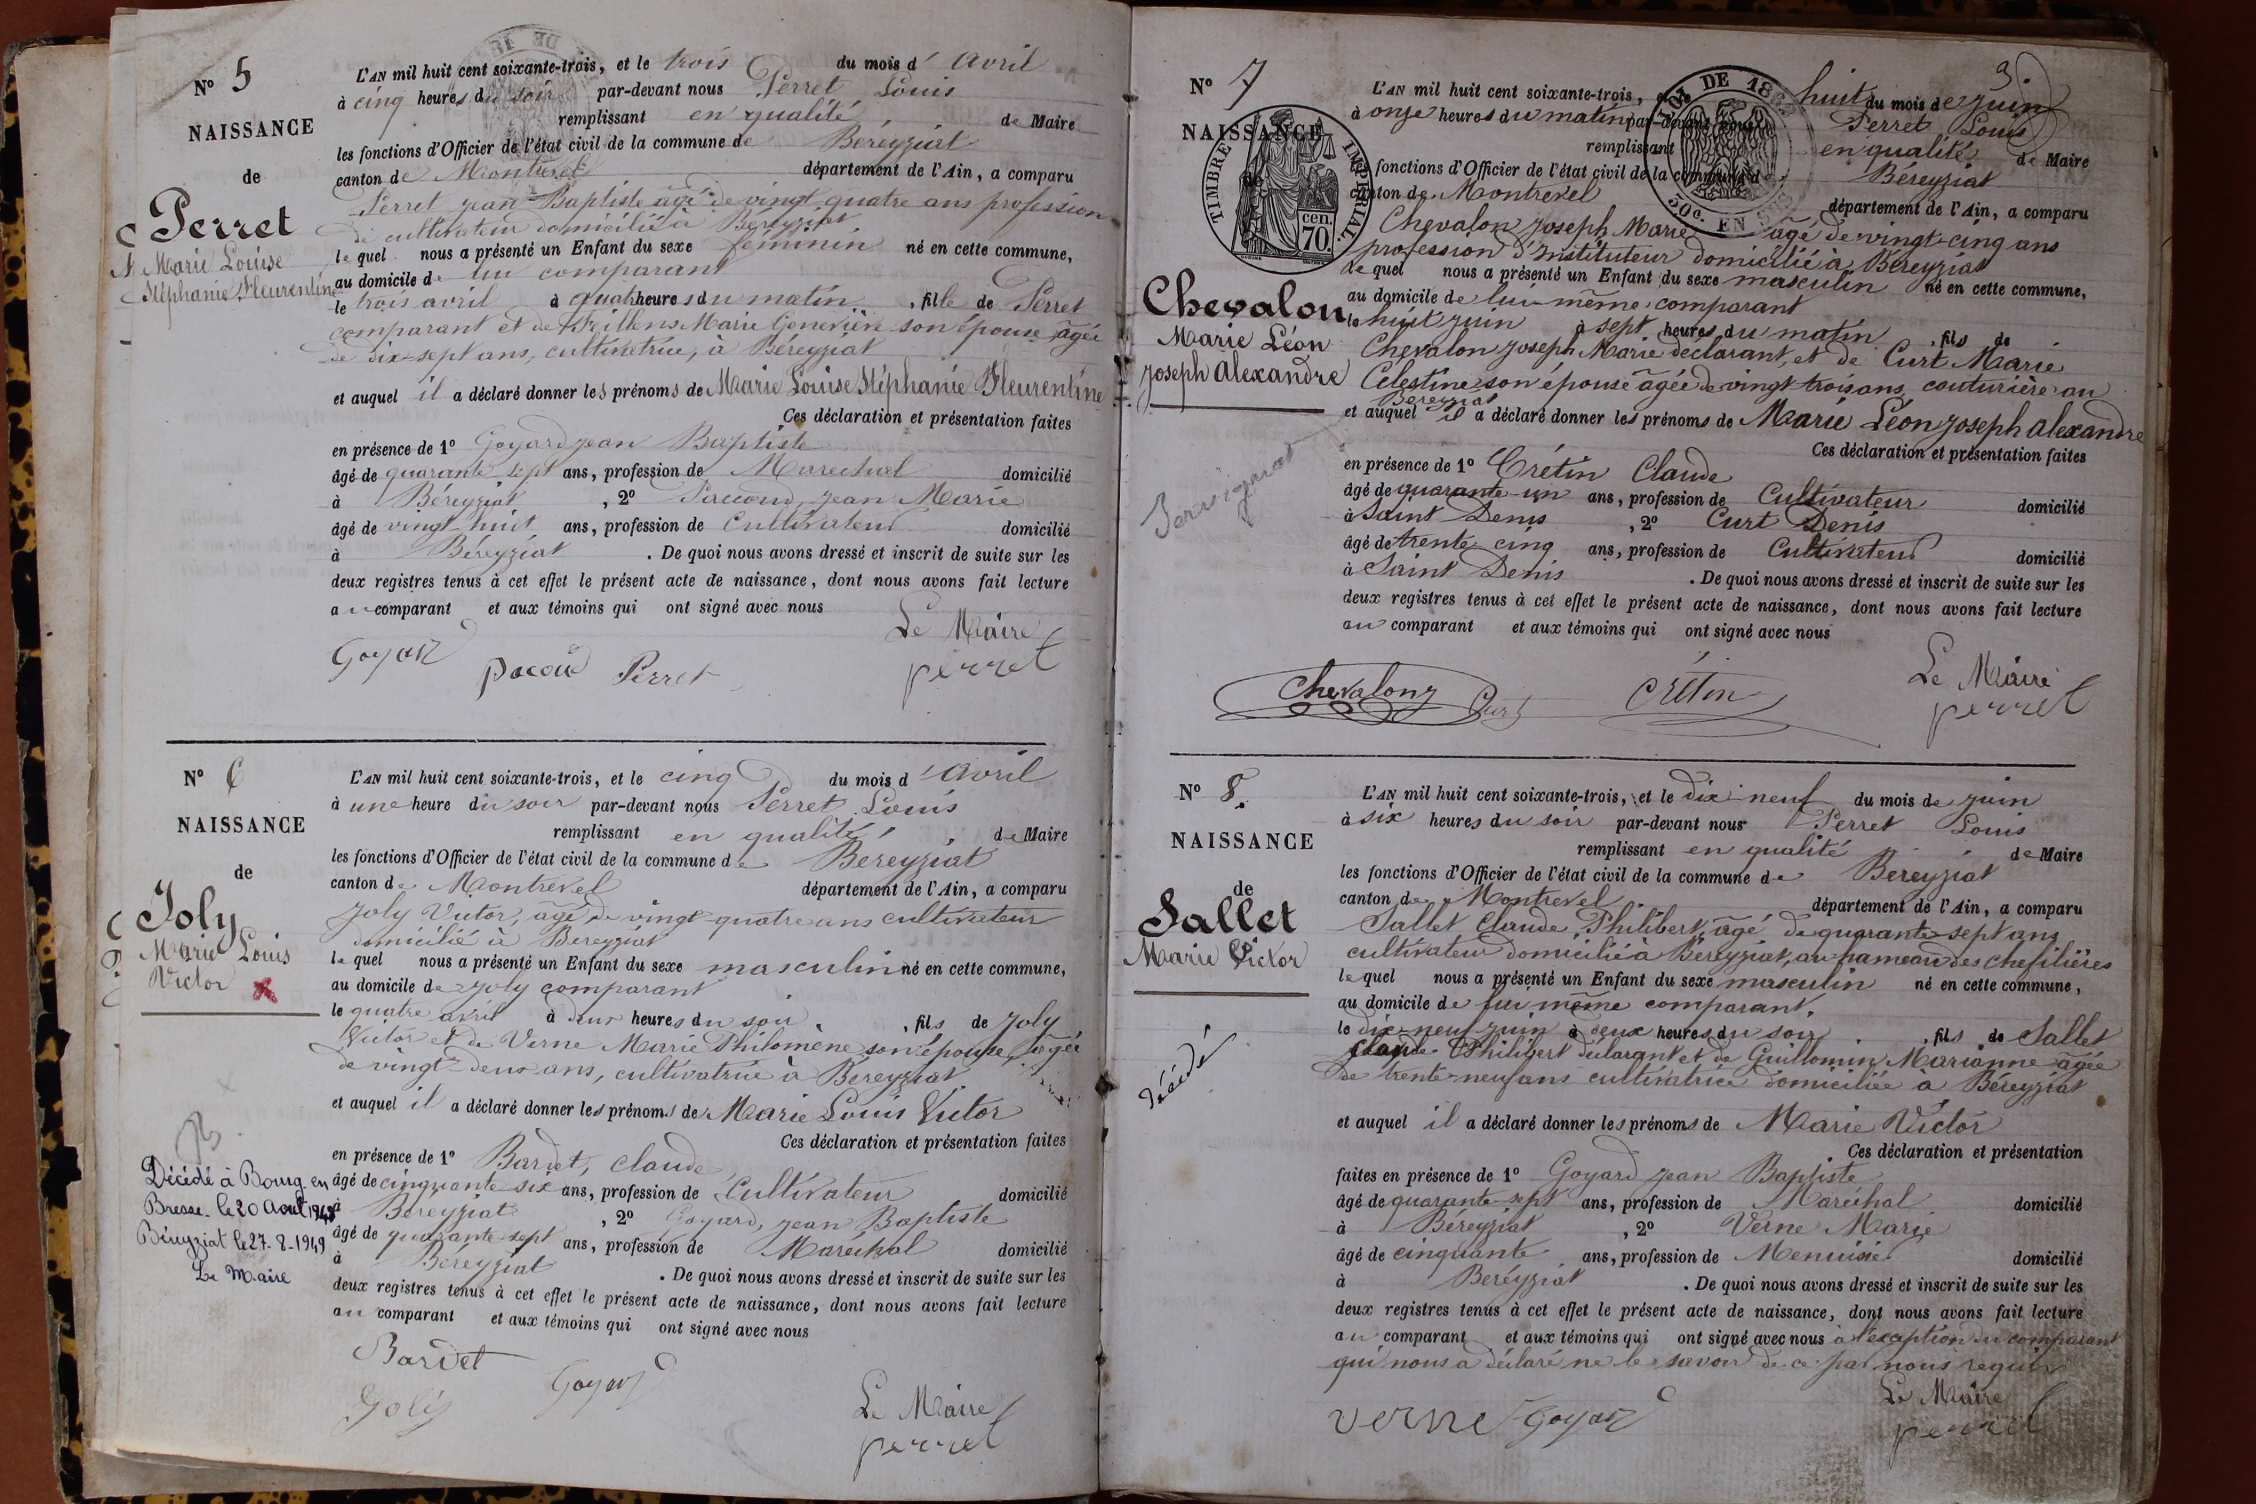 N° 5
NAISSANCE
de
Perret
Marie Louise
Stéphanie Fleurentine
L'AN mil huit cent soixante-trois, et le trois du mois d'avril
à cinq heures du soir par-devant nous Perret Louis
remplissant en qualité de Maire
les fonctions d'Officier de l'état civil de la commune de Béréyziat
canton de Montrevel département de l'Ain, a comparu
Perret jean Baptiste âgé de vingt quatre ans profession
de cultivateur domicilié à Béréyziat
lequel nous a présenté un Enfant du sexe féminin né en cette commune,
au domicile de lui comparant
le trois avril à quatre heures du matin, fille de Perret
comparant et de Marie Geneviève son épouse âgée
de dix-sept ans, cultivatrice, à Béréyziat
et auquel il a déclaré donner les prénoms de Marie Louise Stéphanie Fleurentine
Ces déclaration et présentation faites
en présence de 1° Goyard jean Baptiste
âgé de quarante sept ans, profession de Marechal domicilié
à Béreyziat, 2° Paccoud, jean Marie
âgé de vingt-huit ans, profession de Cultivateur domicilié
à Béreyziat. De quoi nous avons dressé et inscrit de suite sur les
deux registres tenus à cet effet le présent acte de naissance, dont nous avons fait lecture
au comparant et aux témoins qui ont signé avec nous
Le Maire
Goyard pacoud Perret perret
N° 6
NAISSANCE
de
Joly
Marie Louis
Victor
L'AN mil huit cent soixante-trois, et le cinq du mois d'avril
à une heure du soir par-devant nous Perret Louis
remplissant en qualité de Maire
les fonctions d'Officier de l'état civil de la commune de Bereyziat
canton de Montrevel département de l'Ain, a comparu
Joly Victor, âgé de vingt-quatre ans cultivateur
domicilié à Bereyziat
lequel nous a présenté un Enfant du sexe masculin né en cette commune,
au domicile de Joly comparant
le quatre avril à deux heures du soir, fils de Joly
Victor et de Verne Marie Philomène son épouse, âgée
de vingt-deux ans, cultivatrice à Bereyziat
et auquel il a déclaré donner les prénoms de Marie Louis Victor
Ces déclaration et présentation faites
en présence de 1° Bardet, claude
âgé de cinquante six ans, profession de Cultivateur domicilié
à Béreyziat, 2° Goyard, jean Baptiste
âgé de quarante sept ans, profession de Maréchal domicilié
à Béreyziat. De quoi nous avons dressé et inscrit de suite sur les
deux registres tenus à cet effet le présent acte de naissance, dont nous avons fait lecture
au comparant et aux témoins qui ont signé avec nous
Décédé à Bourg en
Bresse le 20 Août 1949
Béreyziat le 27-8-1949
Le Maire
Bardet
Goyard
Le Maire
Joly
perret
3
N° 7
NAISSANCE
TIMBRE IMPÉRIAL
70 cen.
LOI DE 18
50c. EN SUS
Chevalon
Marie Léon
Joseph Alexandre
L'AN mil huit cent soixante-trois, huit du mois de juin
à onze heures du matin par-devant nous Perret Louis
remplissant en qualité de Maire
fonctions d'Officier de l'état civil de la commune de Béreyziat
canton de Montrevel
département de l'Ain, a comparu
Chevalon Joseph Marie âgé de vingt-cinq ans
profession d'Instituteur domicilié à Béreyziat
lequel nous a présenté un Enfant du sexe masculin né en cette commune,
au domicile de lui-même comparant
le huit juin à sept heures du matin, fils de
Chevalon Joseph Marie déclarant, et de Curt Marie
Celestine son épouse âgée de vingt trois ans couturière au
Béreyziat
et auquel il a déclaré donner les prénoms de Marie Léon joseph alexandre
Ces déclaration et présentation faites
en présence de 1° Crétin Claude
âgé de quarante-un ans, profession de Cultivateur domicilié
à Saint Denis, 2° Curt Denis
âgé de trente cinq ans, profession de Cultivateur domicilié
à Saint Denis. De quoi nous avons dressé et inscrit de suite sur les
deux registres tenus à cet effet le présent acte de naissance, dont nous avons fait lecture
au comparant et aux témoins qui ont signé avec nous
Le Maire
Chevalon Curt Crétin perret
N° 8.
NAISSANCE
de
Sallet
Marie Victor
décédé
L'AN mil huit cent soixante-trois, et le dix neuf du mois de juin
à six heures du soir par-devant nous Perret Louis
remplissant en qualité de Maire
les fonctions d'Officier de l'état civil de la commune de Bereyziat
canton de Montrevel département de l'Ain, a comparu
Sallet Claude Philibert, âgé de quarante-sept ans
cultivateur domicilié à Béreyziat, au hameau des chefilières
lequel nous a présenté un Enfant du sexe masculin né en cette commune,
au domicile de lui même comparant.
le dix-neuf juin à deux heures du soir, fils de Sallet
Claude Philibert déclarant et de Guillomin Marianne âgée
de trente-neuf ans cultivatrice domiciliée à Béreyziat
et auquel il a déclaré donner les prénoms de Marie Victor
Ces déclaration et présentation
faites en présence de 1° Goyard jean Baptiste
âgé de quarante-sept ans, profession de Maréchal domicilié
à Béreyziat, 2° Verne Marie
âgé de cinquante ans, profession de Menuisier domicilié
à Beréyziat. De quoi nous avons dressé et inscrit de suite sur les
deux registres tenus à cet effet le présent acte de naissance, dont nous avons fait lecture
au comparant et aux témoins qui ont signé avec nous à l'exception du comparant
qui nous a déclaré ne le savoir de ce par nous requis
Le Maire
verne Goyard perret